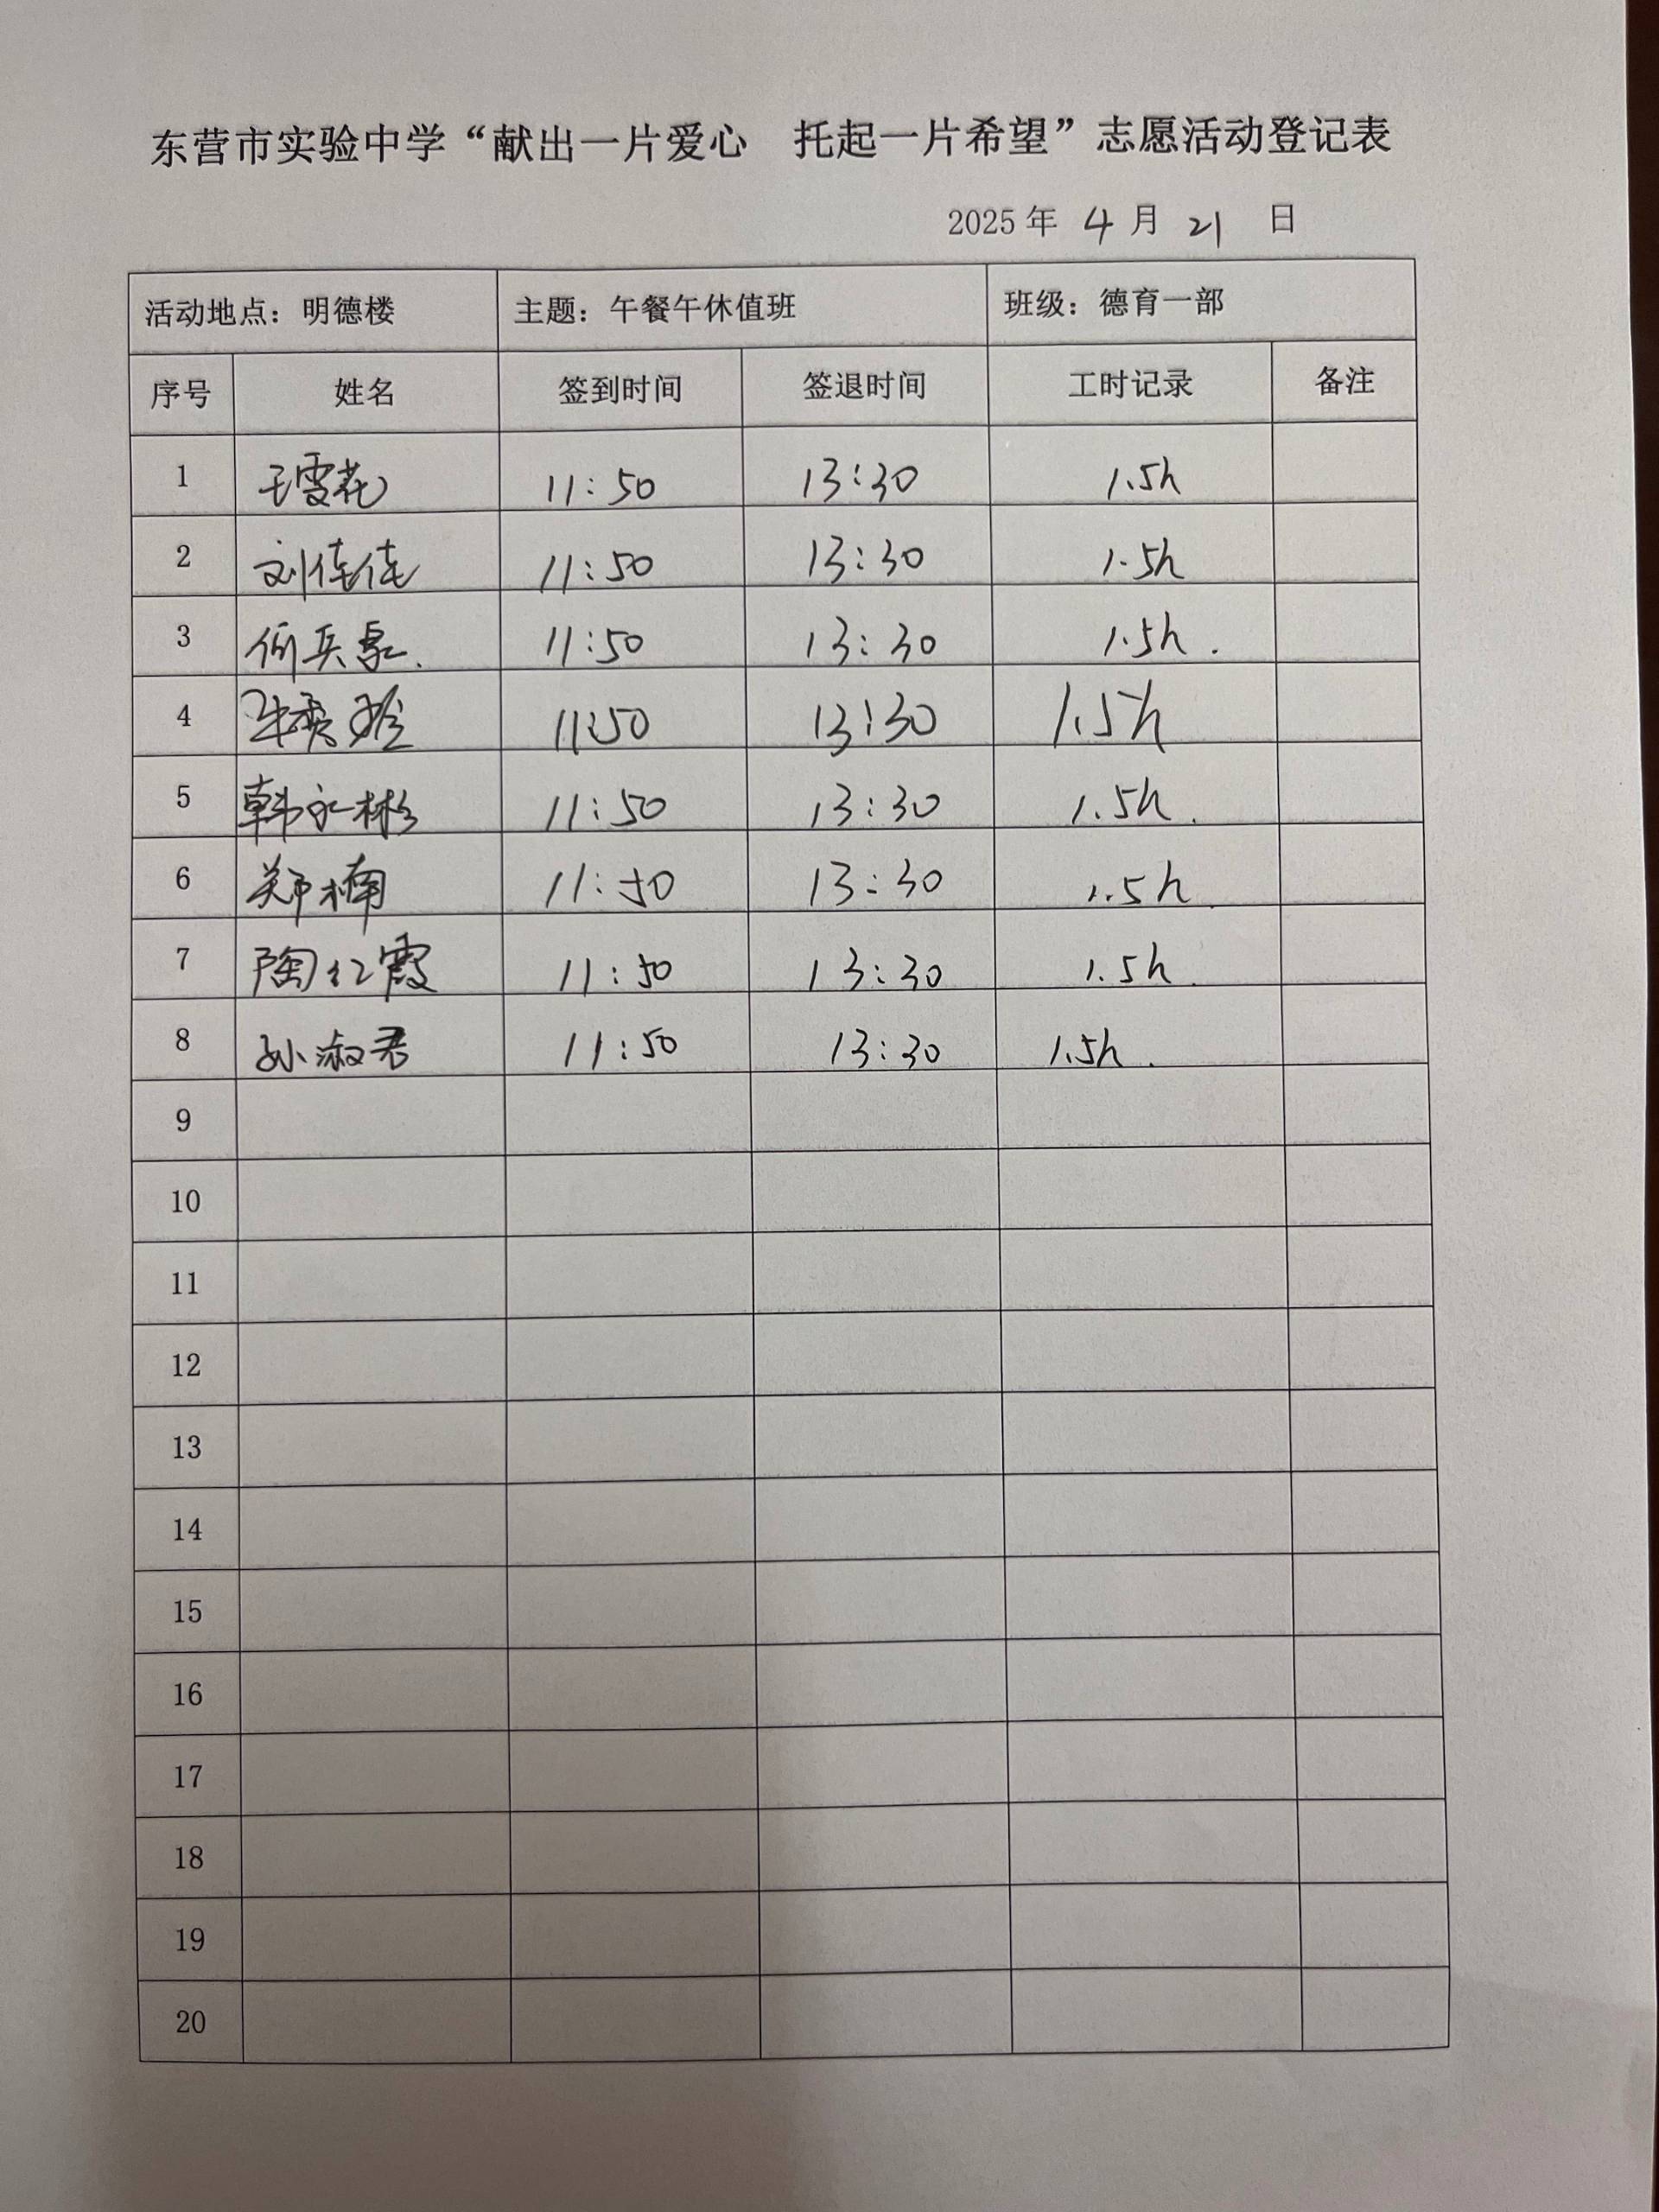 东营市实验中学“献出一片爱心 托起一片希望”志愿活动登记表
2025 年 4 月 21 日
活动地点：明德楼 主题：午餐午休值班 班级：德育一部
序号 姓名 签到时间 签退时间 工时记录 备注
1 王雪花 11:50 13:30 1.5h
2 刘佳佳 11:50 13:30 1.5h
3 11:50 13:30 1.5h.
4 11:50 13:30 1.5h
5 韩永彬 11:50 13:30 1.5h.
6 郑楠 11:50 13:30 1.5h.
7 陶红霞 11:50 13:30 1.5h.
8 孙淑君 11:50 13:30 1.5h.
9
10
11
12
13
14
15
16
17
18
19
20